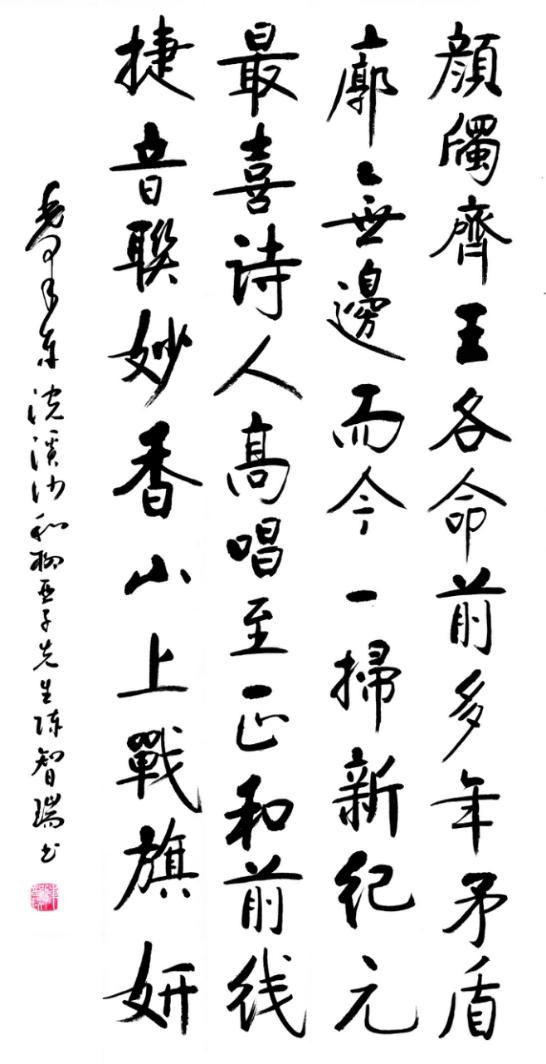 顔斶齊王各命前多年矛盾
廓々無邊而今一掃新紀元
最喜诗人高唱至正和前线
捷音聯妙香山上戰旗妍
毛泽东浣溪沙和柳亚子先生陈智瑞书